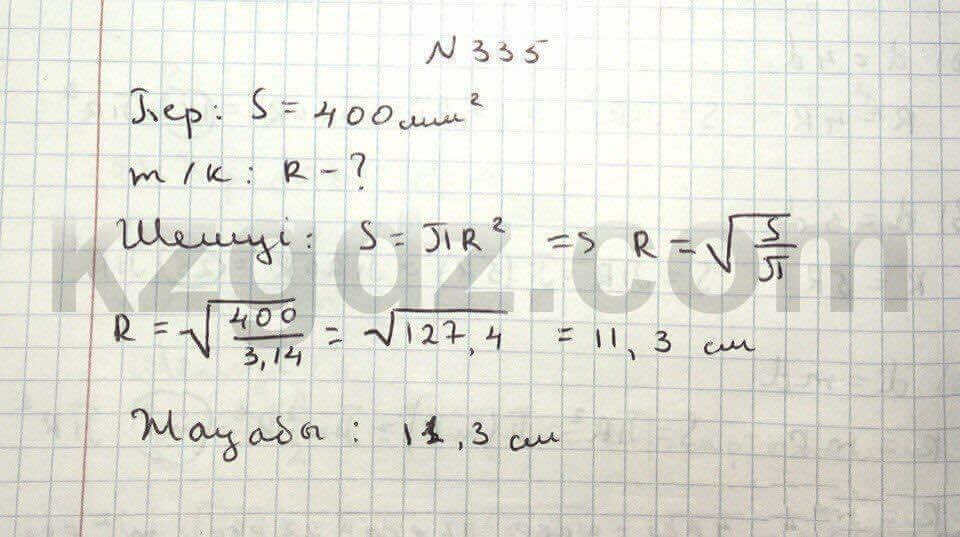 N 335
Бер: S = 400 мм²
т/к: R - ?
Шешуі: S = πR² => R = √(S/π)
R = √(400/3,14) = √127,4 = 11,3 см
Жауабы: 11,3 см
kzgdz.com